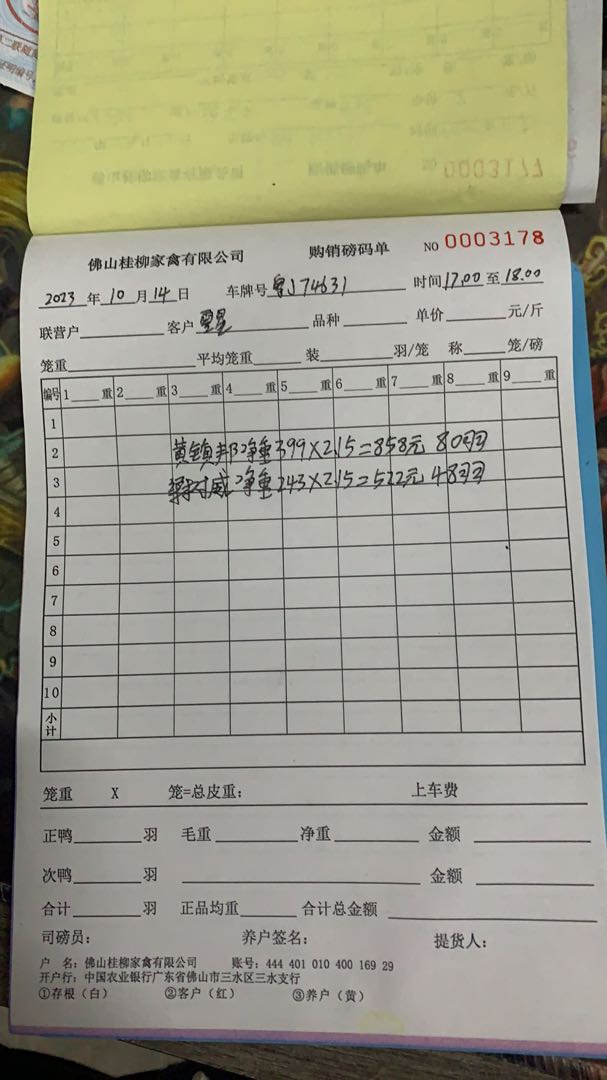 0003177
佛山桂柳家禽有限公司 购销磅码单 NO 0003178
2023 年 10 月 14 日 车牌号 粤J74631 时间 17.00 至 18.00
联营户 客户 品种 单价 元/斤
笼重 平均笼重 装 羽/笼 称 笼/磅
编号 1 重 2 重 3 重 4 重 5 重 6 重 7 重 8 重 9 重
1
2 黄镇邦 净重 399×2.15=858元 80羽
3 威 净重 243×2.15=522元 48羽
4
5
6
7
8
9
10
小计
笼重 X 笼=总皮重： 上车费
正鸭 羽 毛重 净重 金额
次鸭 羽 金额
合计 羽 正品均重 合计总金额
司磅员： 养户签名： 提货人：
户 名：佛山桂柳家禽有限公司 账号：444 401 010 400 169 29
开户行：中国农业银行广东省佛山市三水区三水支行
①存根（白） ②客户（红） ③养户（黄）